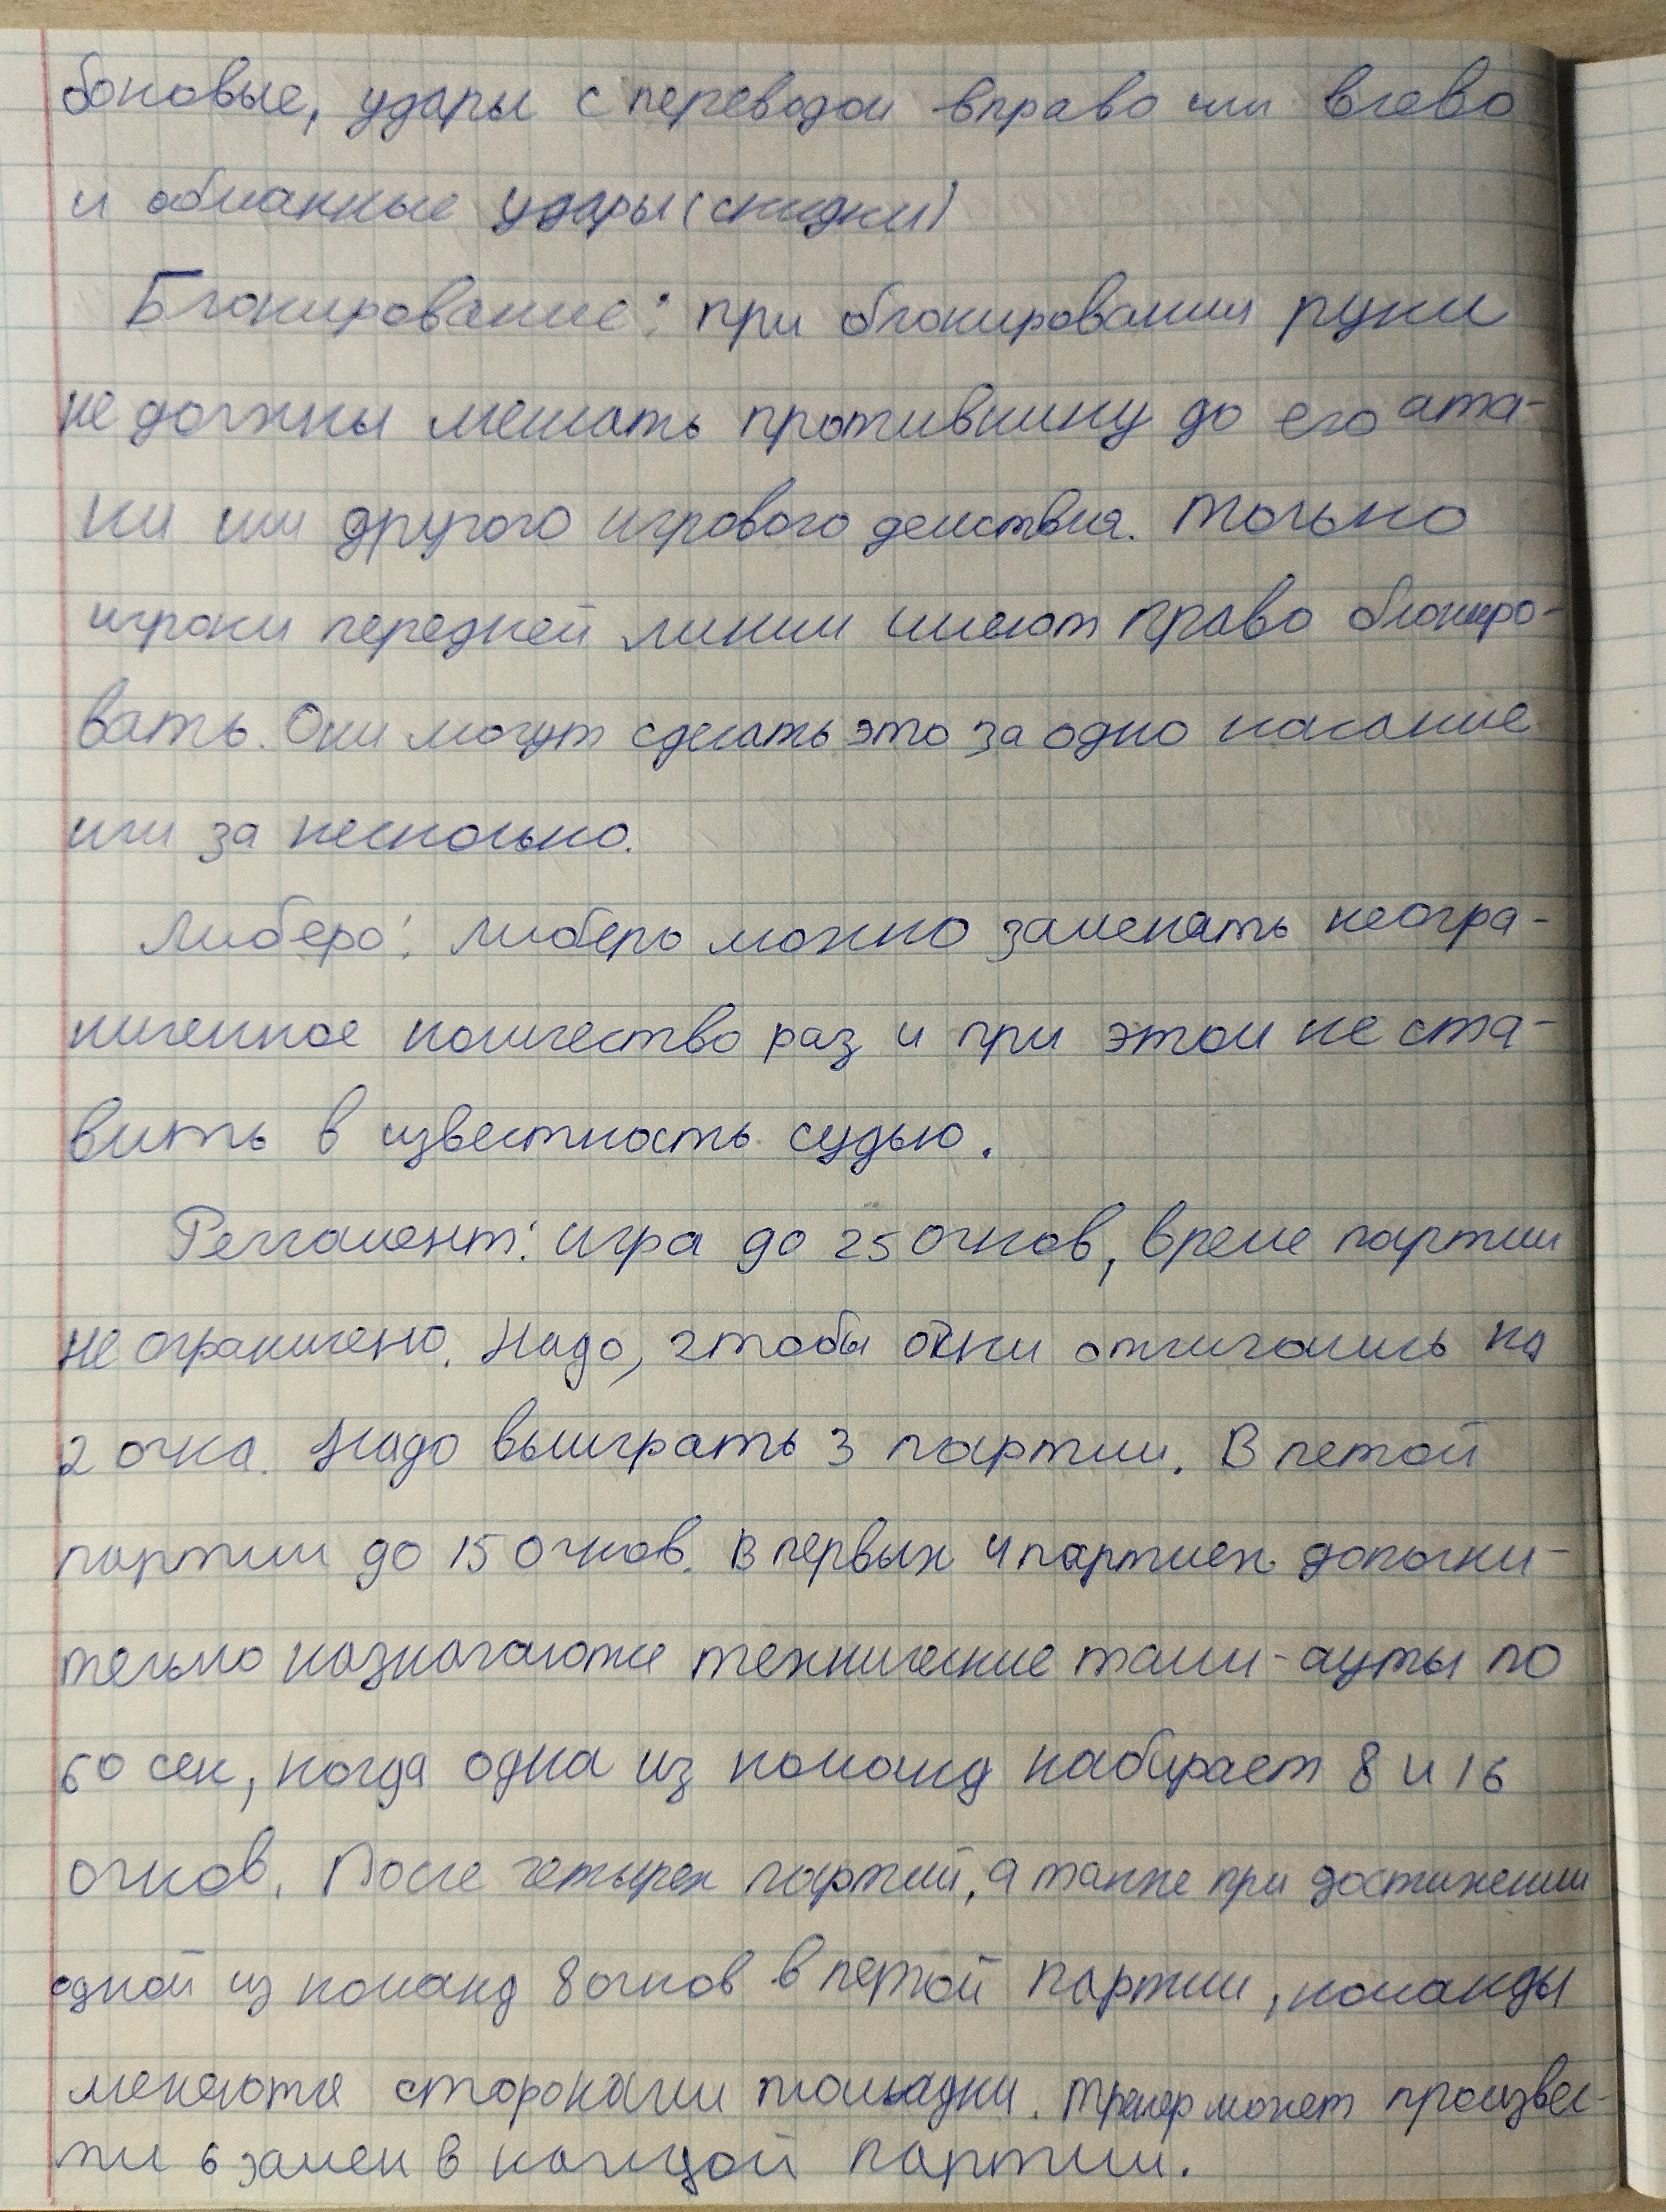 боковые, удары с переводом вправо или влево
и обманные удары (скидки)
Блокирование: при блокировании руки
не должны мешать противнику до его ата-
ки или другого игрового действия. Только
игроки передней линии имеют право блокиро-
вать. Они могут сделать это за одно касание
или за несколько.
Либеро: либеро можно заменять неогра-
ниченное количество раз и при этом не ста-
вить в известность судью.
Регламент: игра до 25 очков, време партии
не ограничено. Надо, чтобы очки отличались на
2 очка. Надо выиграть 3 партии. В петой
партии до 15 очков. В первых 4 партиех дополни-
тельно назначаются технические тайм-ауты по
60 сек, когда одна из команд набирает 8 и 16
очков. После четырех партий, а также при достижении
одной из команд 8 очков в петой партии, команды
меняются сторонами площадки. Тренер может произвес-
ти 6 замен в каждой партии.